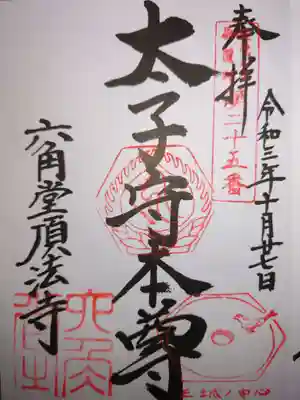 奉拝
令和三年十月廿七日
二十五番
太子守本尊
六角堂頂法寺